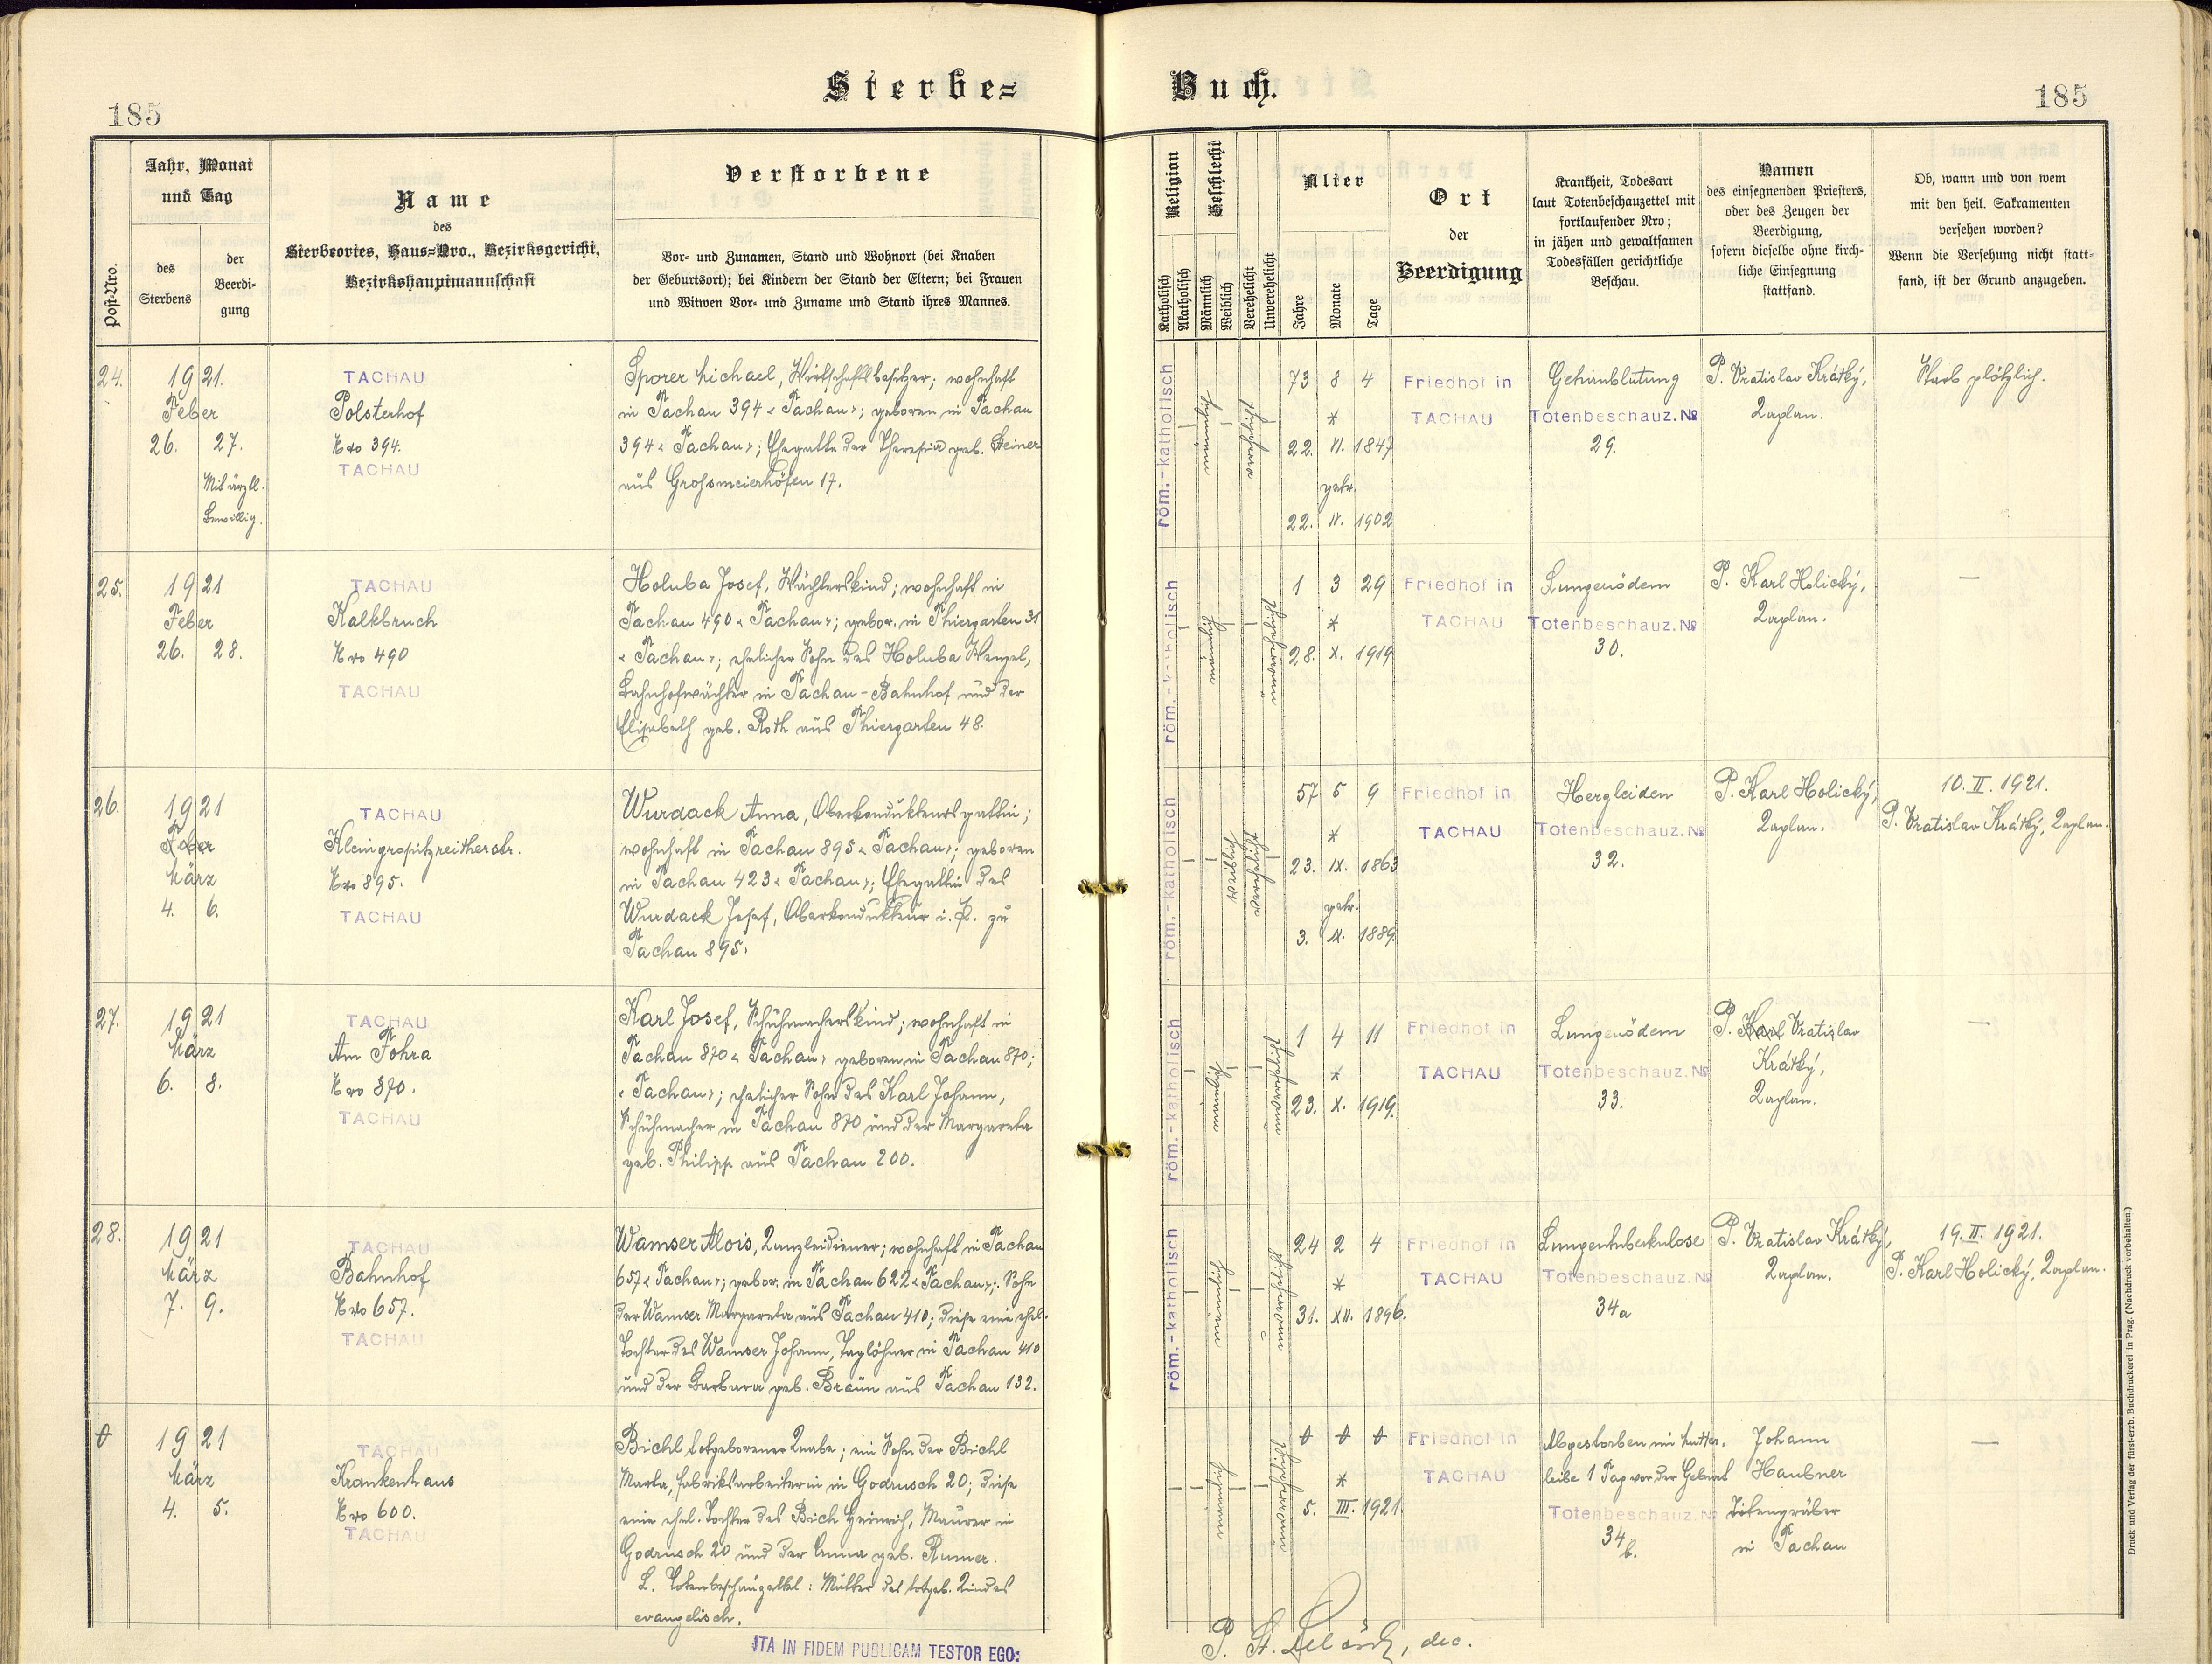 Sterbe= Buch.
185
185
Post-Nro.
Jahr, Monat
und Tag
des
Sterbens
der
Beerdi-
gung
Name
des
Sterbeortes, Haus=Nro., Bezirksgericht,
Bezirkshauptmannschaft
Verstorbene
Vor- und Zunamen, Stand und Wohnort (bei Knaben
der Geburtsort); bei Kindern der Stand der Eltern; bei Frauen
und Witwen Vor- und Zuname und Stand ihres Mannes.
Religion
Katholisch
Akatholisch
Geschlecht
Männlich
Weiblich
Verehelicht
Unverehelicht
Alter
Jahre
Monate
Tage
Ort
der
Beerdigung
Krankheit, Todesart
laut Totenbeschauzettel mit
fortlaufender Nro;
in jähen und gewaltsamen
Todesfällen gerichtliche
Beschau.
Namen
des einsegnenden Priesters,
oder des Zeugen der
Beerdigung,
sofern dieselbe ohne kirch-
liche Einsegnung
stattfand.
Ob, wann und von wem
mit den heil. Sakramenten
versehen worden?
Wenn die Versehung nicht statt-
fand, ist der Grund anzugeben.
24.
1921.
Feber
26. 27.
Mit ärztl.
Bewillig.
TACHAU
Polsterhof
Nro 394.
TACHAU
Sporer Michael, Wirtschaftsbesitzer; wohnhaft
in Tachau 394 "Tachau"; geboren in Tachau
394 "Tachau"; Ehegatte der Theresia geb. Steiner
aus Grossmeierhöfen 17.
röm.-katholisch
73 8 4
*
22. VI. 1847
getr.
22. IV. 1902
Friedhof in
TACHAU
Gehirnblutung
Totenbeschauz. №
29.
P. Vratislav Krátký,
Kaplan.
Starb plötzlich.
25.
1921
Feber
26. 28.
TACHAU
Kalkbruch
Nro 490
TACHAU
Holuba Josef, Wächterskind; wohnhaft in
Tachau 490 "Tachau"; gebor. in Thiergarten 31
"Tachau"; ehelicher Sohn des Holuba Wenzel,
Bahnhofwächter in Tachau-Bahnhof und der
Elisabeth geb. Roth aus Thiergarten 48.
röm.-katholisch
1 3 29
*
28. X. 1919
Friedhof in
TACHAU
Lungenödem
Totenbeschauz. №
30.
P. Karl Holický,
Kaplan.
—
26.
1921
Feber
März
4. 6.
TACHAU
Kleingropitzreitherstr.
Nro 895.
TACHAU
Wurdack Anna, Oberkondukteursgattin;
wohnhaft in Tachau 895 "Tachau"; geboren
in Tachau 423 "Tachau"; Ehegattin des
Wurdack Josef, Oberkondukteur i. P. zu
Tachau 895.
röm.-katholisch
57 5 9
*
23. IX. 1863
getr.
3. IX. 1889.
Friedhof in
TACHAU
Herzleiden
Totenbeschauz. №
32.
P. Karl Holický,
Kaplan.
10. II. 1921.
P. Vratislav Krátký, Kaplan.
27.
1921
März
6. 8.
TACHAU
Am Fohra
Nro 870.
TACHAU
Karl Josef, Schuhmacherskind; wohnhaft in
Tachau 870 "Tachau" geboren in Tachau 870;
"Tachau"; ehelicher Sohn des Karl Johann,
Schuhmacher in Tachau 870 und der Margareta
geb. Philipp aus Tachau 200.
röm.-katholisch
1 4 11
*
23. X. 1919.
Friedhof in
TACHAU
Lungenödem
Totenbeschauz. №
33.
P. Karl Vratislav
Krátký,
Kaplan.
—
28.
1921
März
7. 9.
TACHAU
Bahnhof
Nro 657.
TACHAU
Wamser Alois, Kanzleidiener; wohnhaft in Tachau
657 "Tachau"; gebor. in Tachau 622 "Tachau"; Sohn
der Wamser Margareta aus Tachau 410; diese eine ehel.
Tochter des Wamser Johann, Taglöhner in Tachau 410
und der Barbara geb. Braun aus Tachau 132.
röm.-katholisch
24 2 4
*
31. XII. 1896.
Friedhof in
TACHAU
Lungentuberkulose
Totenbeschauz. №
34a
P. Vratislav Krátký,
Kaplan.
19. II. 1921.
P. Karl Holický, Kaplan.
1921
März
4. 5.
TACHAU
Krankenhaus
Nro 600.
TACHAU
Bichl totgeborener Knabe; ein Sohn der Bichl
Marta, Fabriksarbeiterin in Godrusch 20; diese
eine ehel. Tochter des Bichl Heinrich, Maurer in
Godrusch 20 und der Anna geb. Rumer.
L. Totenbeschauzettel: Mutter des totgeb. Kindes
evangelisch.
*
5. III. 1921.
Friedhof in
TACHAU
Abgestorben im Mutter-
leibe 1 Tag vor der Geburt
Totenbeschauz. №
34 b.
Johann
Haubner
Totengräber
in Tachau
—
ITA IN FIDEM PUBLICAM TESTOR EGO:
Druck und Verlag der fürst-erzb. Buchdruckerei in Prag. (Nachdruck vorbehalten.)